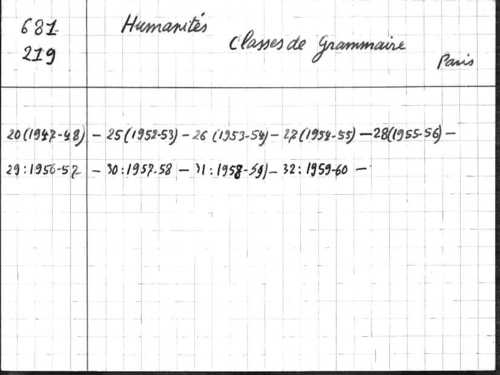 681
219
Humanités
Classes de Grammaire
Paris
20(1947-48) - 25(1952-53) - 26 (1953-54) - 27(1954-55) - 28(1955-56) -
29:1956-57 - 30:1957-58 - 31:1958-59) - 32:1959-60 -